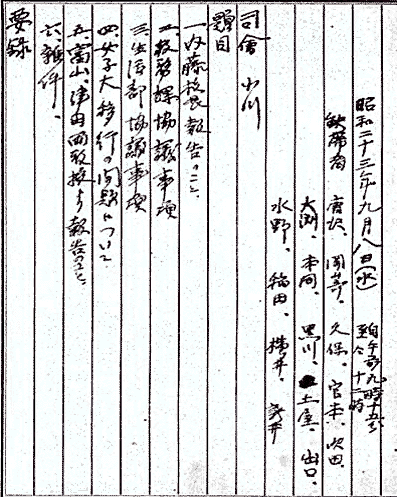 昭和二十三年九月八日(水) 自午前九時十五分
至仝 十二時
欠席者 唐沢、関等、久保、宮本、吹田、
大渕、本間、黒川、土屋、出口、
水野、稲田、横井、
司会 小川
題目
一、内藤校長報告のこと、
二、教務課協議事項
三、生活部協議事項
四、女子大移行の問題について
五、富山、津田両教授より報告のこと
六、雑件、
要録